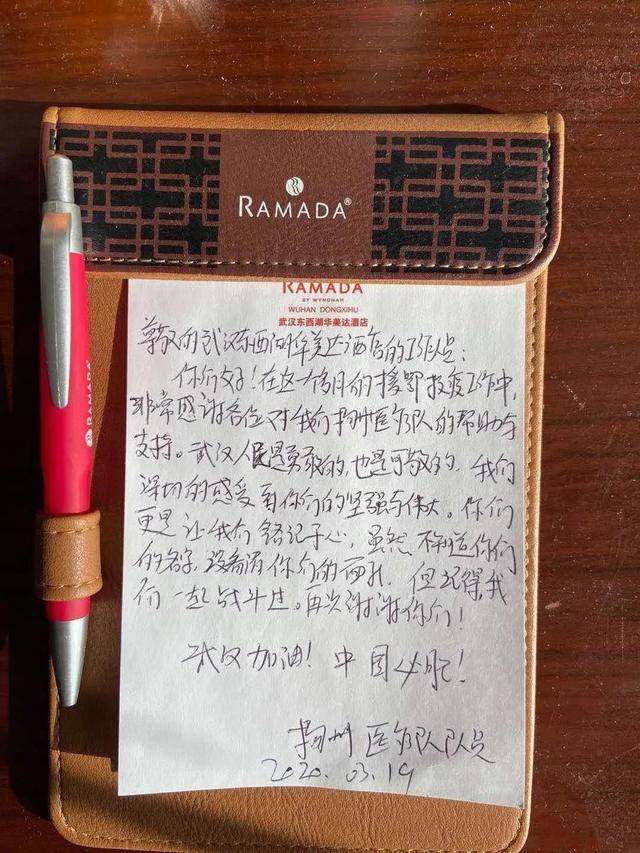 RAMADA®
RAMADA
BY WYNDHAM
WUHAN DONGXIHU
武汉东西湖华美达酒店
尊敬的武汉东西湖华美达酒店的工作人员:
你们好!在这一个多月的援鄂抗疫工作中,
非常感谢各位对我们扬州医疗队的帮助与
支持。武汉人民是勇敢的,也是可敬的,我们
深切的感受到你们的坚强与伟大。你们
更是让我们铭记于心,虽然不知道你们
的名字,没看清你们的面孔,但记得我
们一起战斗过。再次谢谢你们!
武汉加油!中国必胜!
扬州医疗队队员
2020.03.19
RAMADA